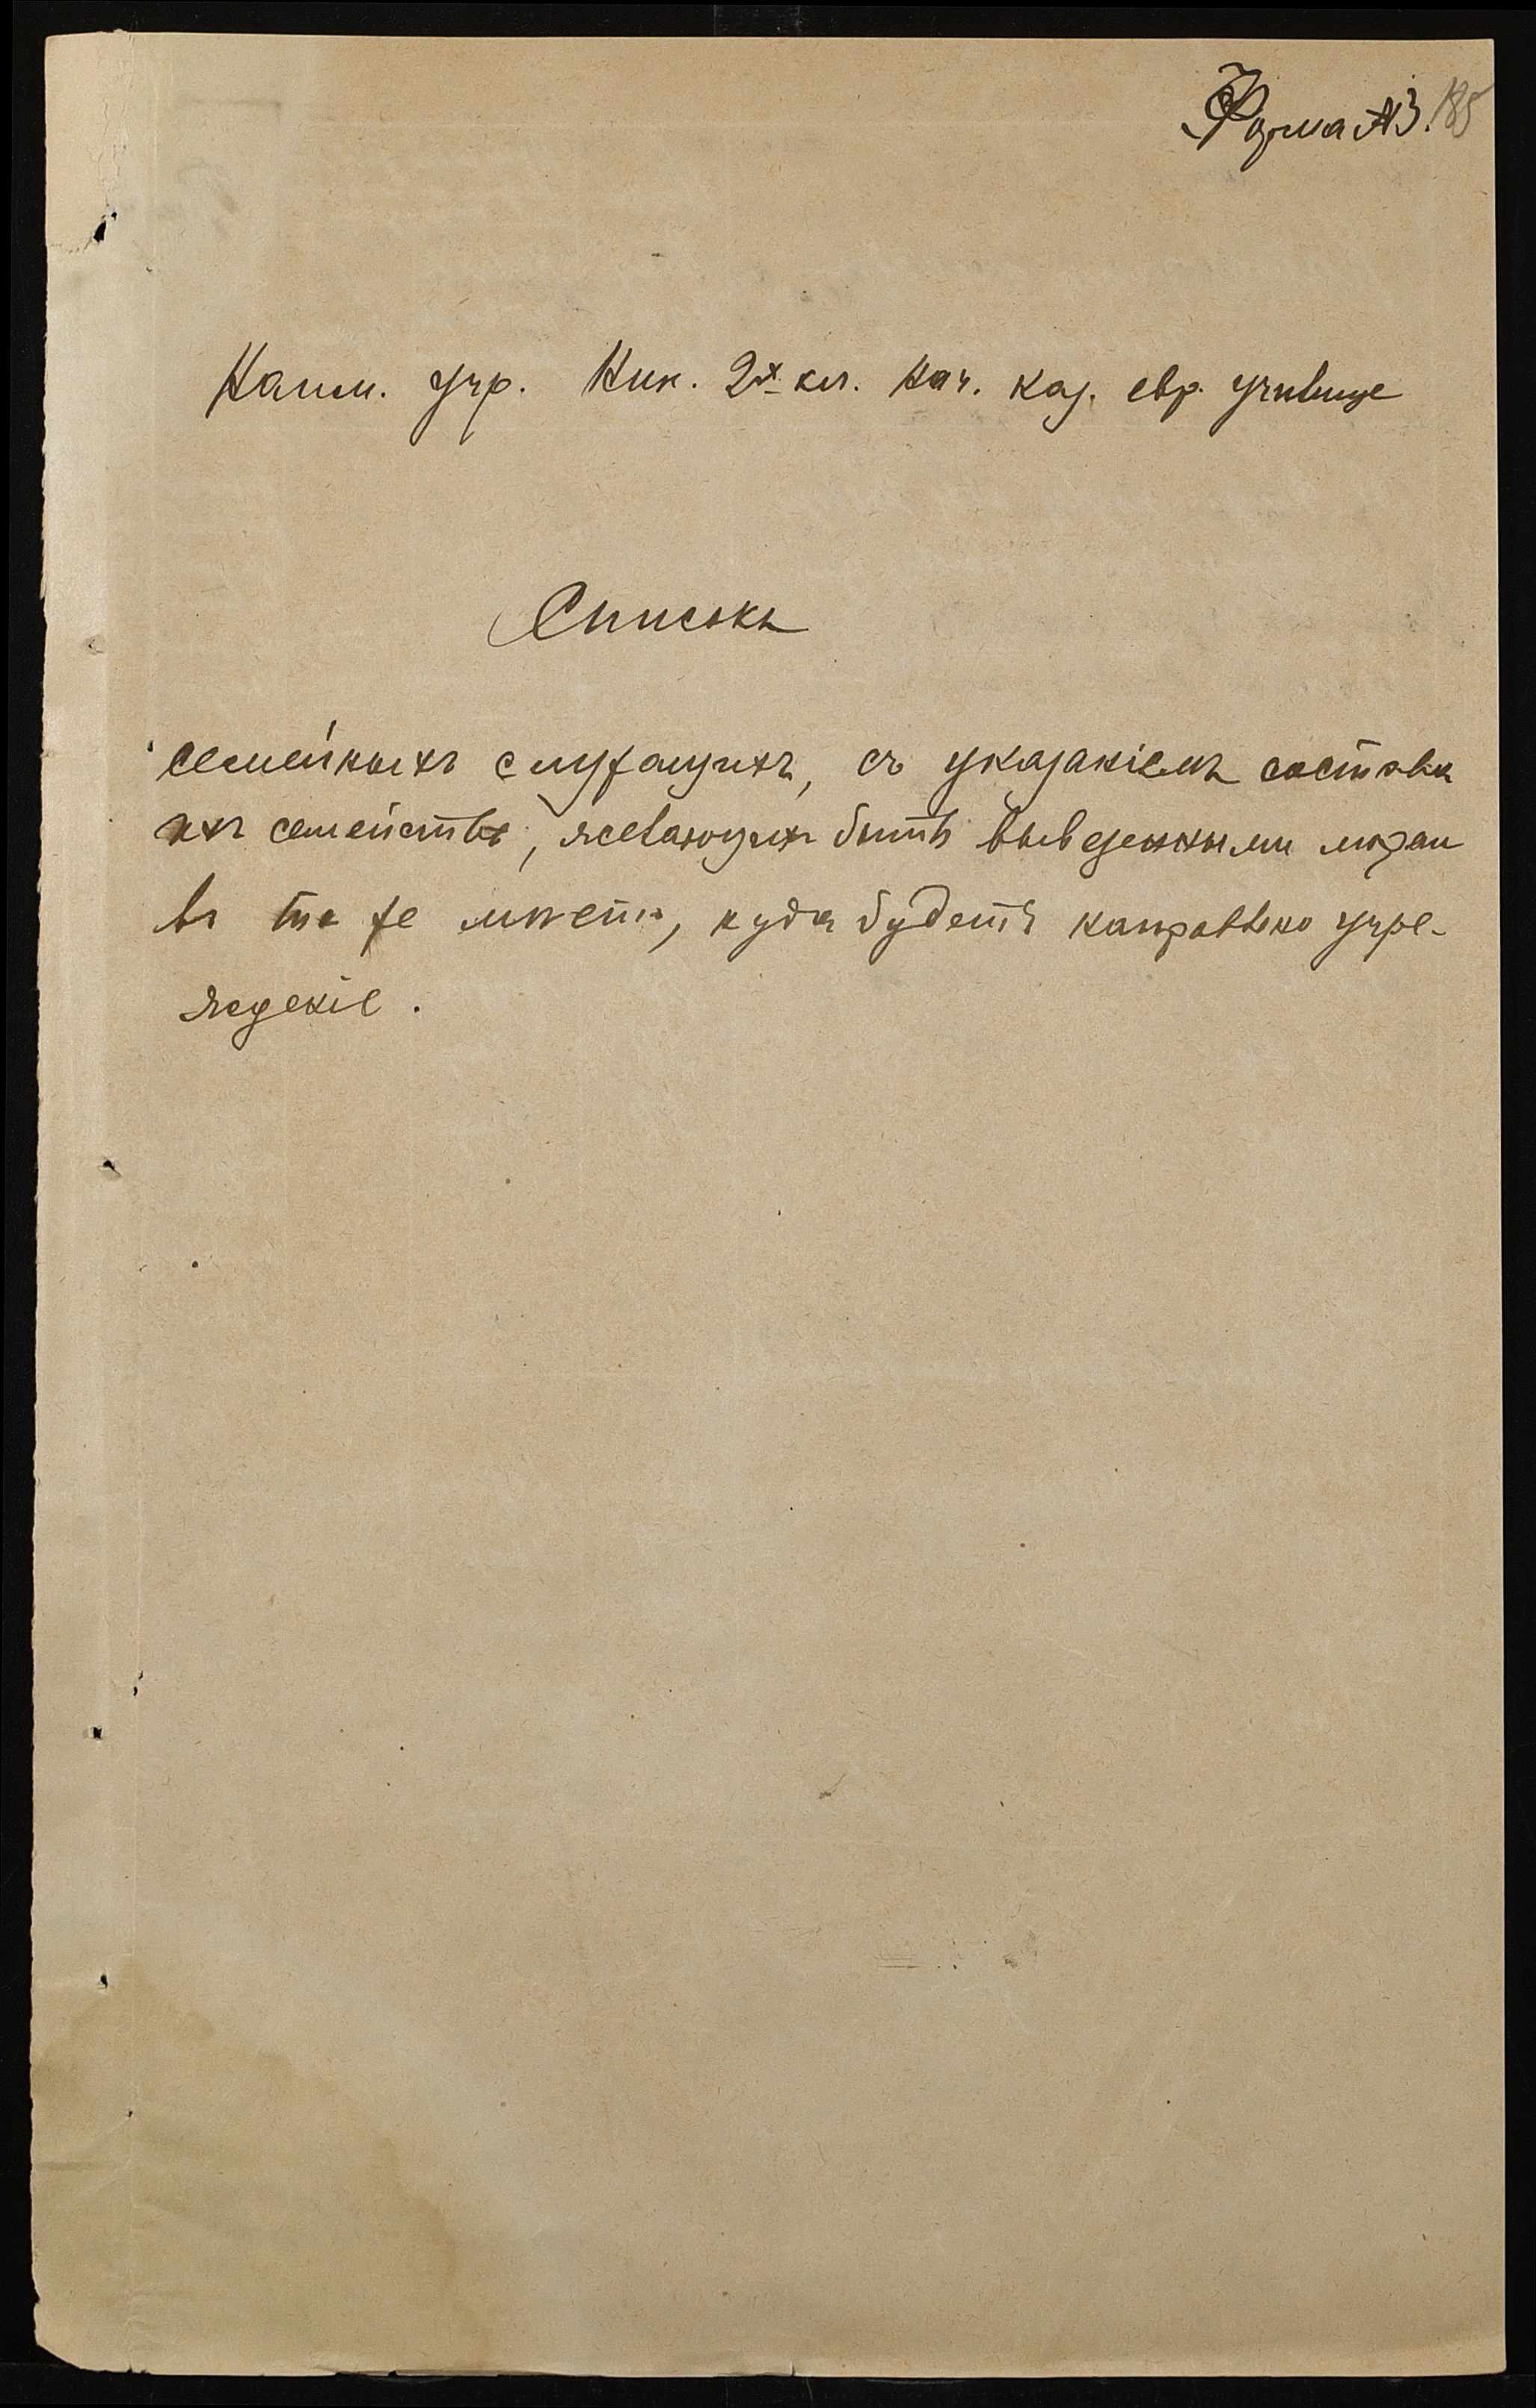 Форма №3. 185
Наим. учр. Ник. 2х кл. нач. каз. евр. училище
Списокъ
семейныхъ служащихъ, съ указаніемъ состава
ихъ семействъ, желающихъ быть выведенными
въ то же мѣсто, куда будетъ направлено учре-
жденіе.